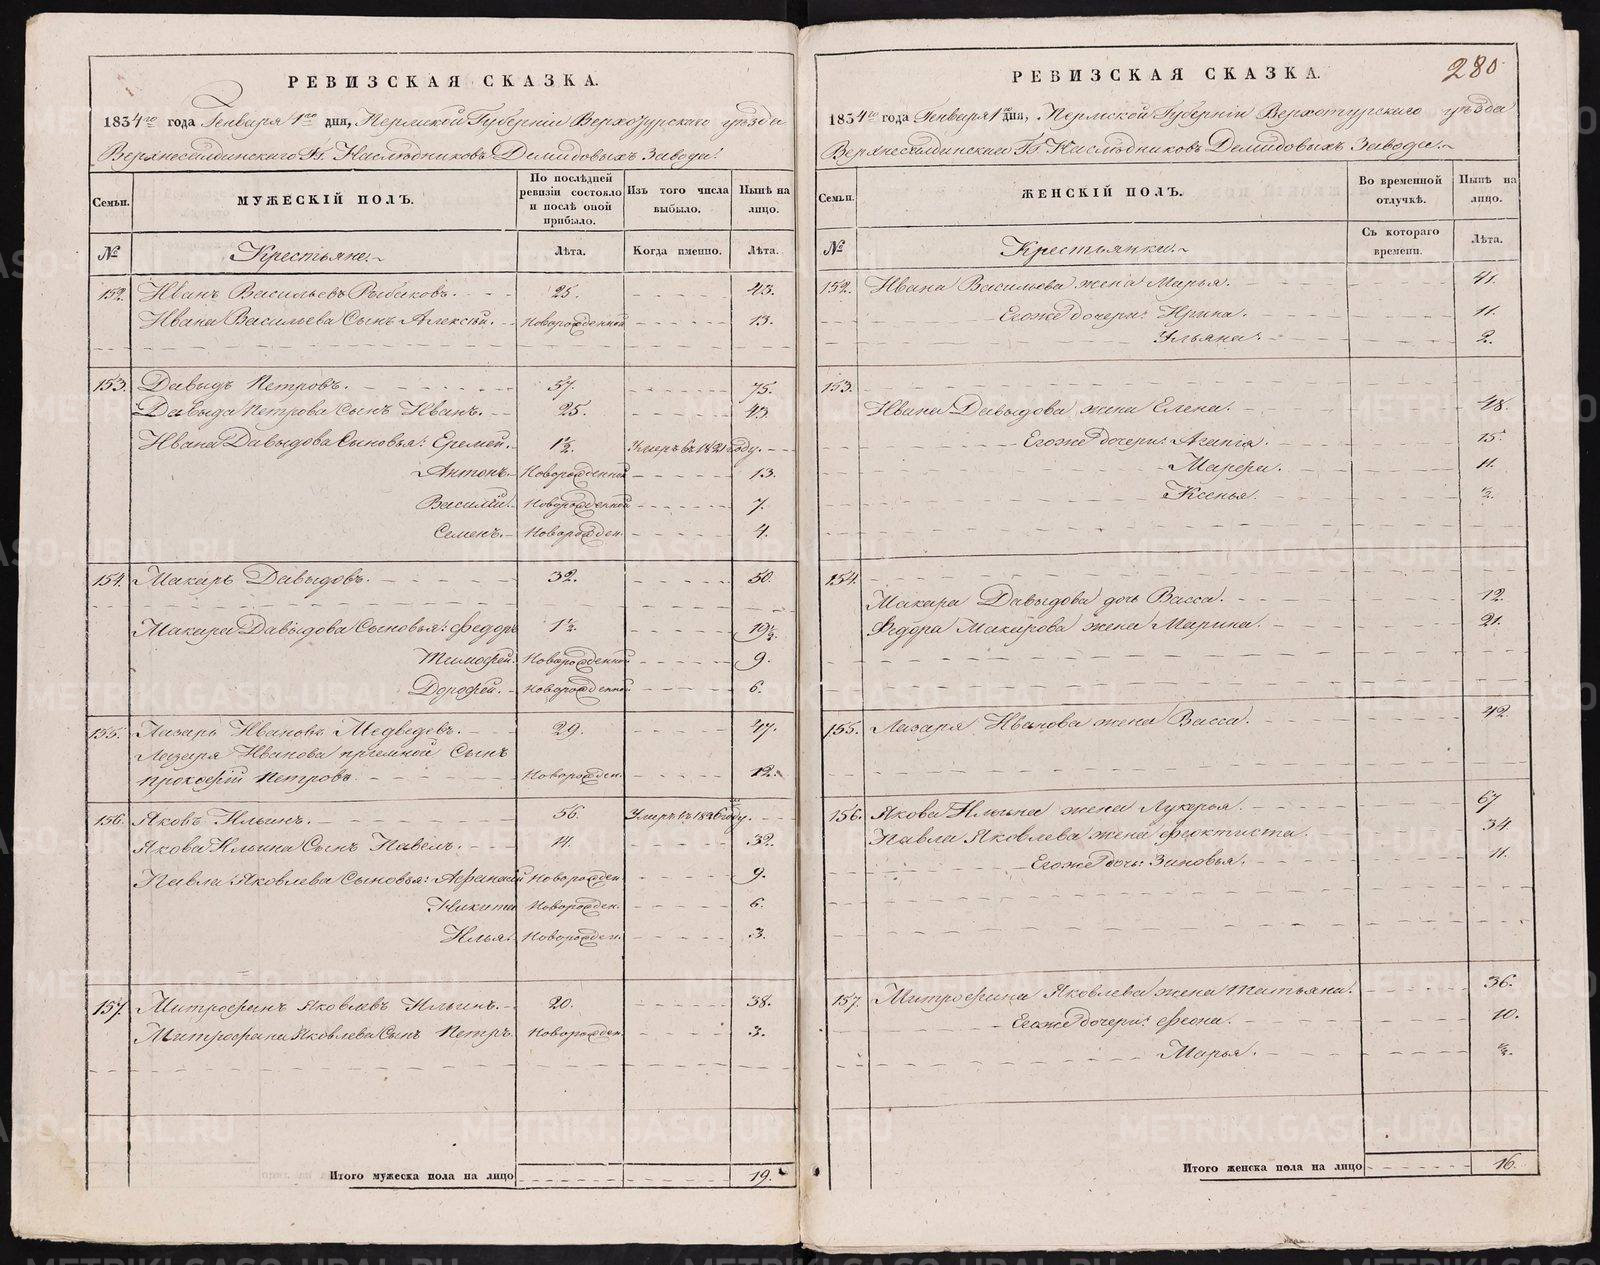 РЕВИЗСКАЯ СКАЗКА.
1834го года Генваря 1го дня, Пермской Губернiи Верхотурскаго уѣзда
Верхнесалдинскаго Гг. Наслѣдниковъ Демидовыхъ Завода.
Семьи. МУЖЕСКIЙ ПОЛЪ. По послѣдней ревизiи состояло и послѣ оной прибыло. Изъ того числа выбыло. Нынѣ на лицо.
№ Крестьяне. Лѣта. Когда именно. Лѣта.
152. Иванъ Васильевъ Рыбаковъ. 25. 43.
Ивана Васильева Сынъ Алексѣй. Новорожденной 13.
153. Давыдъ Петровъ. 57. 75.
Давыда Петрова Сынъ Иванъ. 25. 43.
Ивана Давыдова Сыновья: Еремей. 1½. Умеръ въ 1821 году.
Антонъ. Новорожденной 13.
Василiй. Новорожденной 7.
Семенъ. Новорожден. 4.
154. Макаръ Давыдовъ. 32. 50.
Макара Давыдова Сыновья: Федоръ 1½. 19½.
Тимофей. Новорожденной 9.
Дорофей. Новорожденной 6.
155. Лазарь Ивановъ Медведевъ. 29. 47.
Лазаря Иванова прiемной Сынъ
Прокофiй Петровъ. Новорожден. 12.
156. Яковъ Ильинъ. 56. Умеръ въ 1826 году.
Якова Ильина Сынъ Павелъ. 14. 32.
Павла Яковлева Сыновья: Афанасiй Новорожден. 9.
Никита Новорожден. 6.
Илья. Новорожден. 3.
157. Митрофанъ Яковлевъ Ильинъ. 20. 38.
Митрофана Яковлева Сынъ Петръ. Новорожден. 3.
Итого мужеска пола на лицо 19.
280
РЕВИЗСКАЯ СКАЗКА.
1834го года Генваря 1го дня, Пермской Губернiи Верхотурскаго уѣзда
Верхнесалдинскаго Гг. Наслѣдниковъ Демидовыхъ Завода.
Семьи. ЖЕНСКIЙ ПОЛЪ. Во временной отлучкѣ. Нынѣ на лицо.
№ Крестьянки. Съ котораго времени. Лѣта.
152. Ивана Васильева жена Марья. 41.
Егоже дочери: Ирина. 11.
Ульяна. 2.
153.
Ивана Давыдова жена Елена. 48.
Егоже дочери: Агапiя. 15.
Марфа. 11.
Ксенья. ½.
154.
Макара Давыдова дочь Васса. 12.
Федора Макарова жена Марина. 21.
155. Лазаря Иванова жена Васса. 42.
156. Якова Ильина жена Лукерья. 67
Павла Яковлева жена Феоктиста. 34.
Егоже дочь: Зиновья. 11.
157. Митрофана Яковлева жена Татьяна. 36.
Егоже дочери: Феона. 10.
Марья. ½.
Итого женска пола на лицо 16.
METRIKI.GASO-URAL.RU